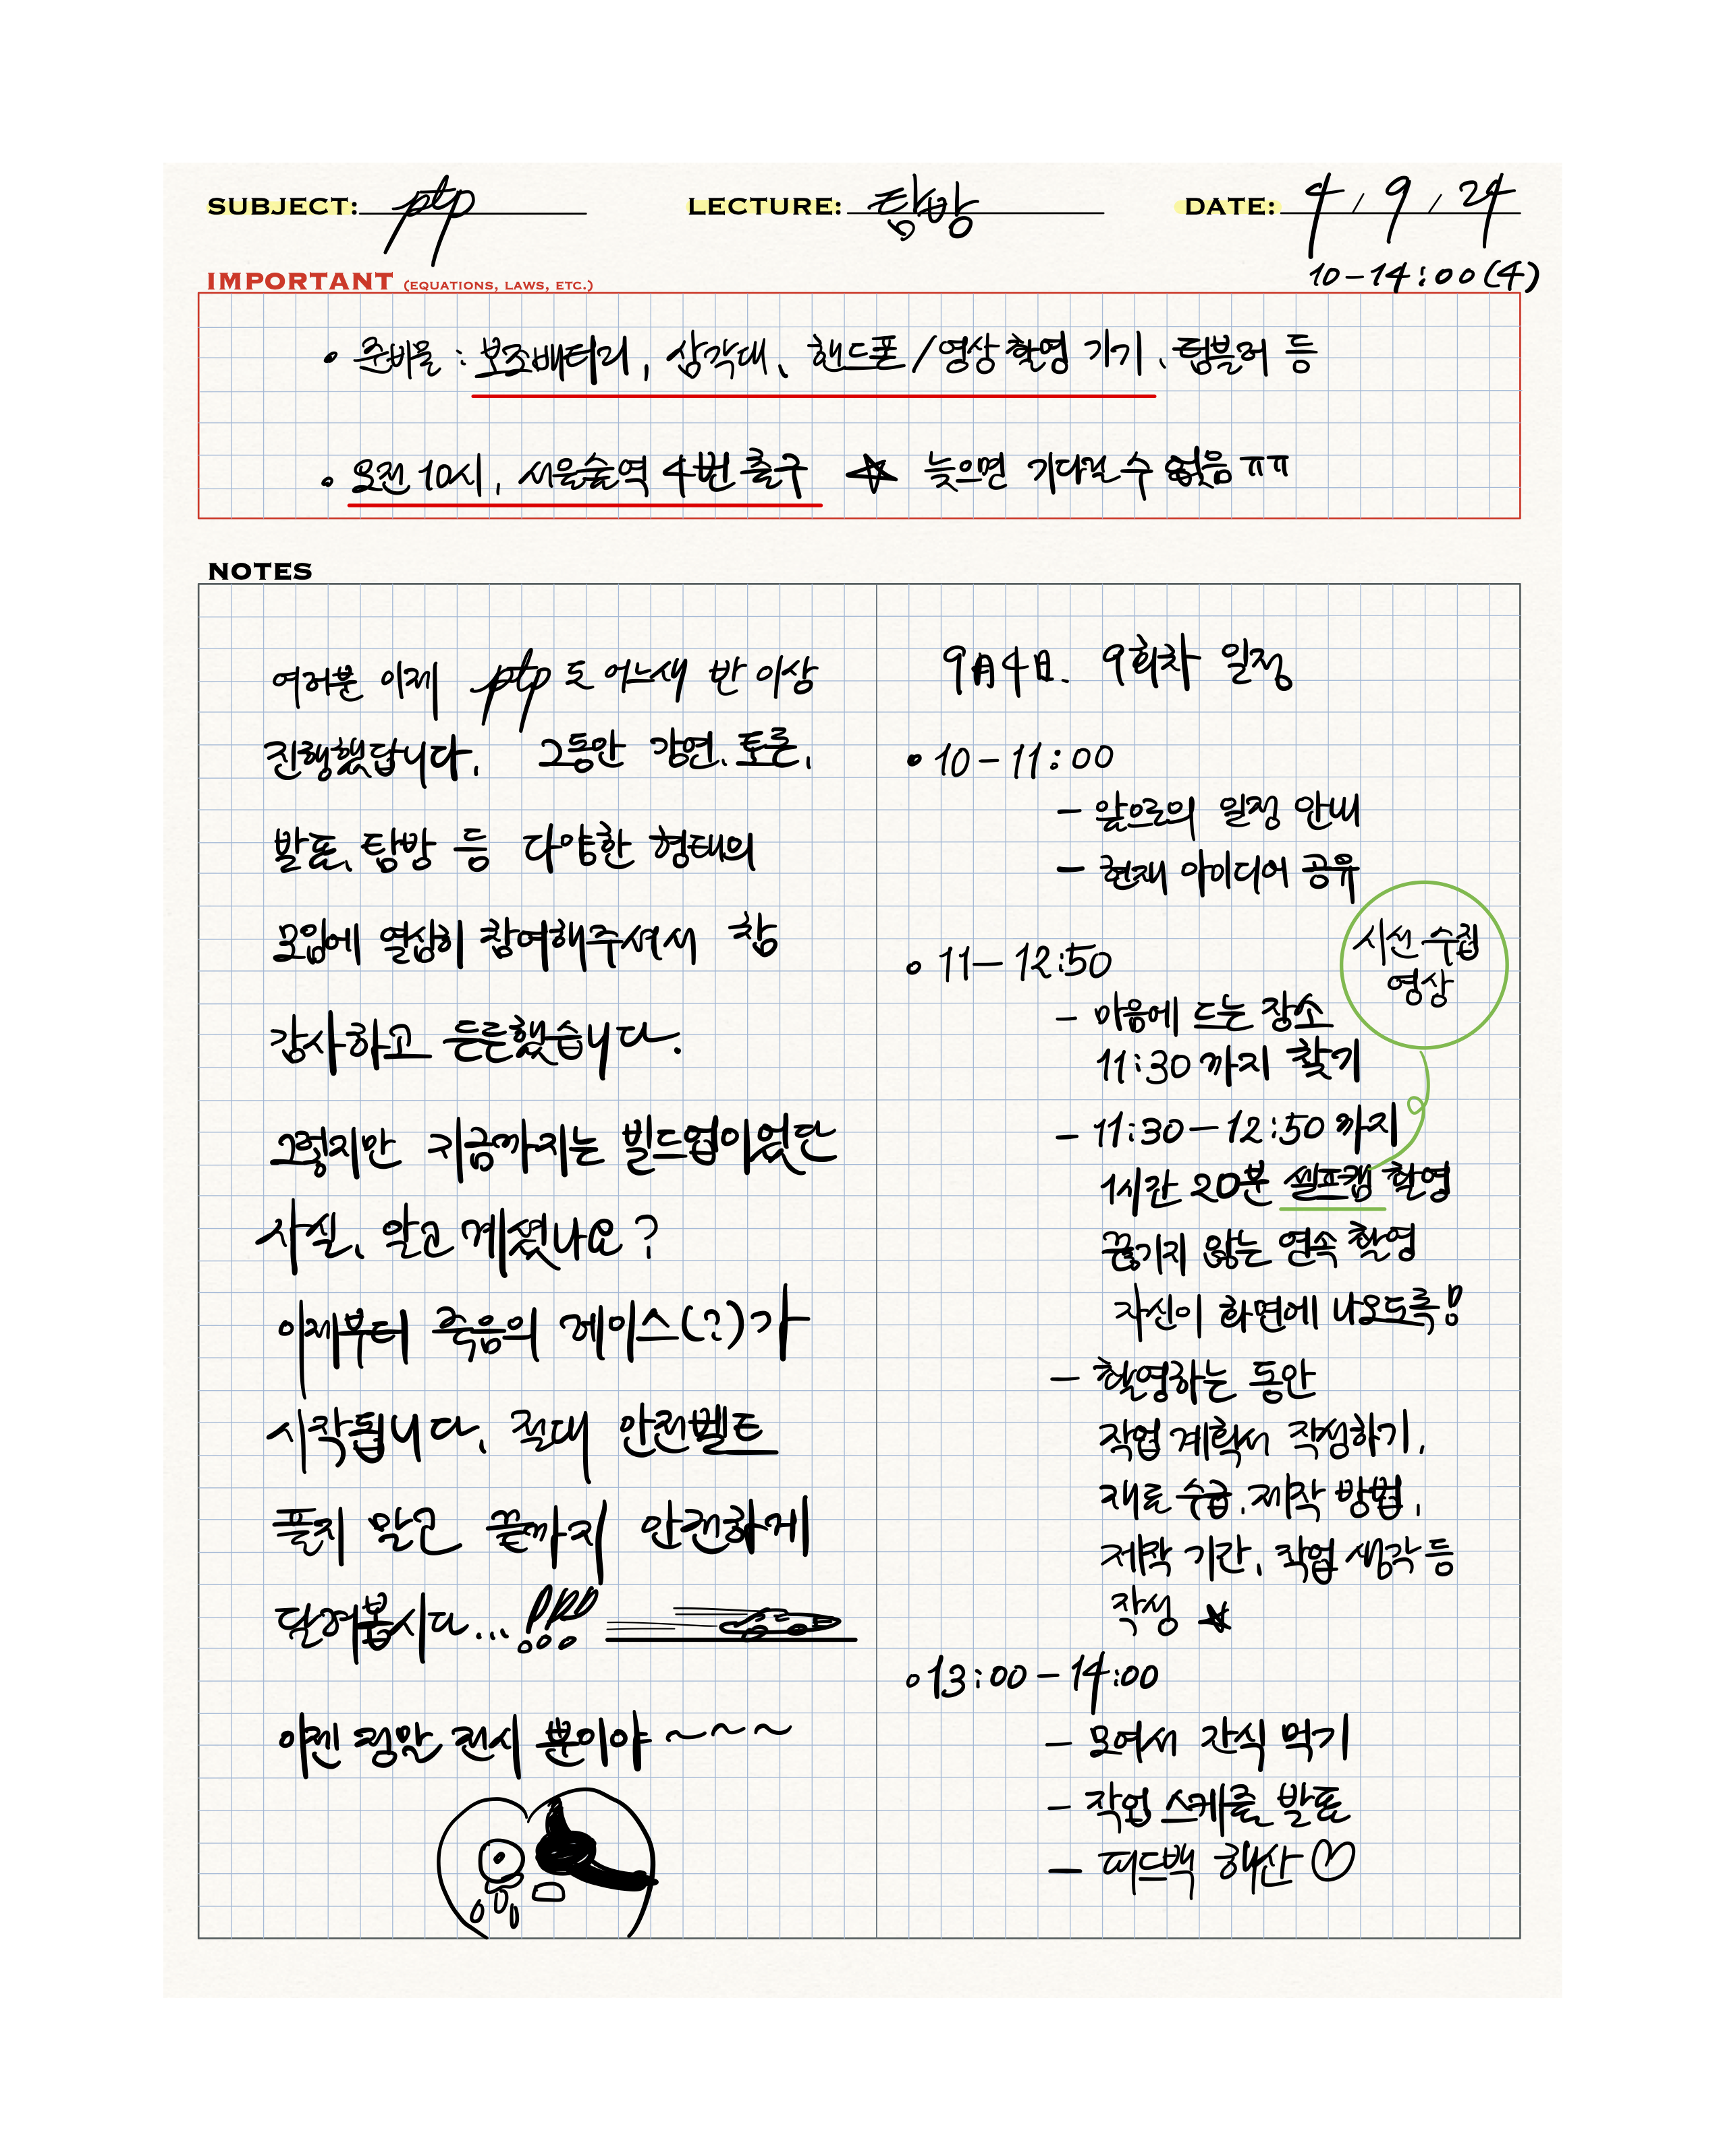 SUBJECT: ptp
LECTURE: 탐방
DATE: 4 / 9 / 24
10-14:00(4)
IMPORTANT (EQUATIONS, LAWS, ETC.)
• 준비물 : 보조배터리, 삼각대, 핸드폰/영상 촬영 기기, 텀블러 등
• 오전 10시, 서울숲역 4번 출구 ☆ 늦으면 기다릴 수 없음 ㅠㅠ
NOTES
여러분 이제 ptp도 어느새 반 이상
진행했답니다. 그동안 강연, 토론,
발표, 탐방 등 다양한 형태의
모임에 열심히 참여해주셔서 참
감사하고 든든했습니다.
그렇지만 지금까지는 빌드업이었단
사실, 알고 계셨나요?
이제부터 죽음의 레이스(?)가
시작됩니다. 절대 안전벨트
풀지 말고 끝까지 안전하게
달려봅시다...!!!
이젠 정말 전시 뿐이야~~~
9月4日. 9회차 일정
• 10-11:00
- 앞으로의 일정 안내
- 현재 아이디어 공유
• 11-12:50
- 마음에 드는 장소
11:30까지 찾기
시선 수집
영상
- 11:30-12:50까지
1시간 20분 셀프캠 촬영
끊기지 않는 연속 촬영
자신이 화면에 나오도록!
- 촬영하는 동안
작업 계획서 작성하기.
재료 수급, 제작 방법,
제작 기간, 작업 생각 등
작성 ★
• 13:00-14:00
- 모여서 간식 먹기
- 작업 스케줄 발표
- 피드백 해산 ♡